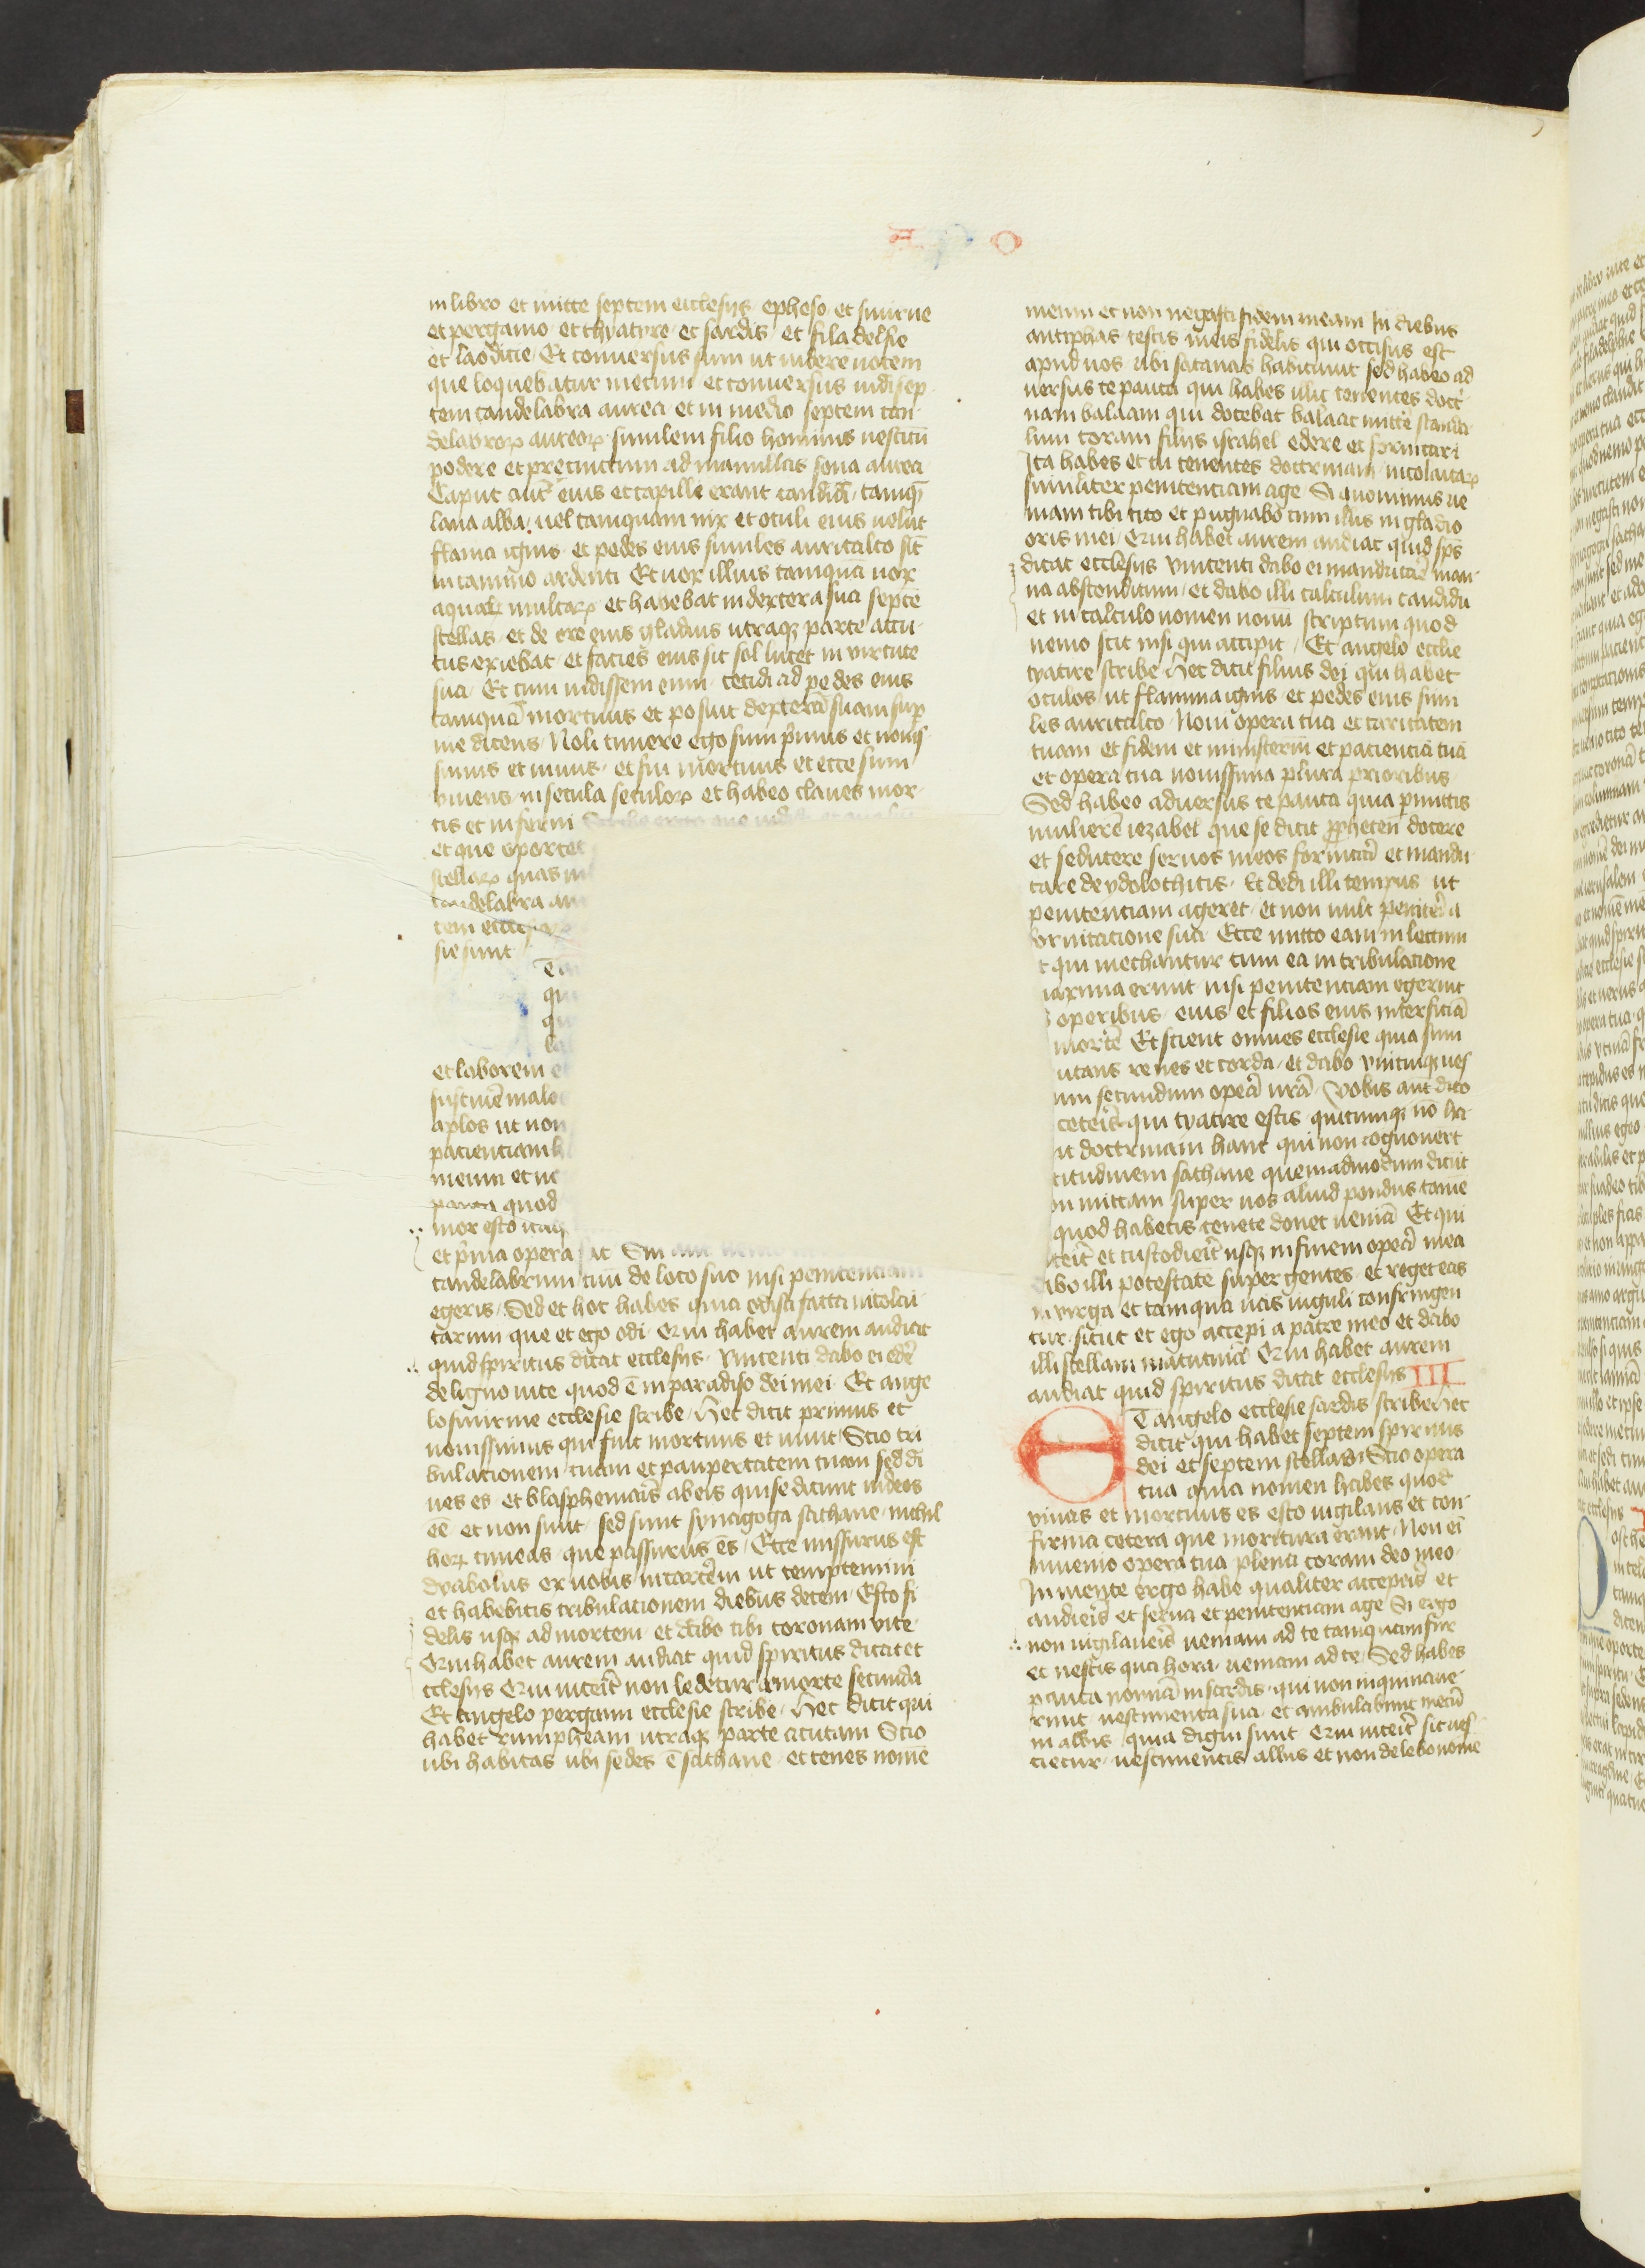 A p o
in libro et mitte septem ecclesijs epheso et smirne
et pergamo et thyatyre et sardis et filadelfie
et laodicie Et conuersus sum ut viderem uocem
que loquebatur mecum et conuersus vidi sep
tem candelabra aurea et in medio septem can
delabrorꝫ aureorꝫ similem filio hominis uestitū
podere et precinctum ad mamillas sona aurea
Caput aut̄ eius et capilli erant candidi tamqꝫ
lana alba uel tamquam nix et oculi eius uelut
flama ignis et pedes eius similes auricalco sic̄
in camino ardenti Et uox illius tamquā uox
aquarꝫ multarꝫ et habebat in dextera sua septē
stellas et de ore eius gladius utraqꝫ parte accu
tus exiebat et facies eius sic sol lucet in virtute
sua Et cum uidissem eum cecidi ad pedes eius
tamquā mortuus et posuit dexterā suam sup̄
me dicens Noli timere ego sum p̄mus et nouis
simus et uiuus et fui mortuus et ecce sum
viuens in secula seculorꝫ et habeo claues mor
tis et inferni Scribe ergo que uidi
et que oportet
stellarꝫ quas in
candelabra au
tem eccl
sie sunt
T an
qu
qu
la
et laborem e
sustinē malos
aplos ut non
pacienciam h
meum et nō
pauca quod
mor esto itaqꝫ
et p̄ma opera fac Sin aut ueni
candelabrum tuū de loco suo nisi penitenciam
egeris Sed et hoc habes quia odisti facta nicolai
tarum que et ego odi Qui habet aurem audiat
quid spiritus dicat ecclesijs Vincenti dabo ei eder̄
de ligno uite quod ē in paradiso dei mei Et ange
lo smirne ecclesie scribe Hec dicit primus et
nouissimus qui fuit mortuus et uiuit Scio tri
bulacionem tuam et paupertatem tuam sed di
ues es et blasphemaris ab eis qui se dicunt iudeos
eē et non sunt sed sunt synagoga sathane nichil
horꝫ timeas que passurus es Ecce missurus est
dyabolus ex uobis in carcerem ut temptemini
et habebitis tribulacionem diebus decem Esto fi
delis usqꝫ ad mortem et dabo tibi coronam vite
Qui habet aurem audiat quid spiritus dicat et
cclesijs Qui uicerit non ledetur a morte secunda
Et angelo pergami ecclesie scribe Hec dicit qui
habet rumpheam utraqꝫ parte acutam Scio
ubi habitas ubi sedes ē sathane et tenes nomē
meum et non negasti fidem meam In diebus
antiphas testis meus fidelis qui occisus est
apud uos ubi satanas habitauit sed habeo ad
uersus te pauca qui habes illic tenentes doct
nam balaam qui docebat balaac mitte scanda
lum coram filijs israhel edere et fornicari
Ita habes et tu tenentes doctrinam nicolaitarꝫ
similiter penitenciam age Si quominus ue
niam tibi cito et pugnabo cum illis in gladio
oris mei Qui habet aurem audiat quid sp̄s
dicat ecclesijs Vincenti dabo ei manducare man
na absconditum et dabo illi calculum candidū
et in calculo nomen nouū scriptum quod
nemo scit nisi qui accipit Et angelo ecclie
tyatire scribe Hec dicit filius dei qui habet
oculos ut flamma ignis et pedes eius simi
les auricalco Noui opera tua et caritatem
tuam et fidem et ministeriū et pacienciā tuā
et opera tua nouissima plura prioribus
Sed habeo aduersus te pauca quia p̄mittis
mulierē iezabel que se dicit ꝓpheten docere
et seducere seruos meos fornicari et mandu
care de ydolothitis Et dedi illi tempus ut
penitenciam ageret et non uult penitēa
fornicacione sua Ecce mitto eam in lectum
t qui mechantur cum ea in tribulacione
axima erunt nisi penitenciam egerint
operibus eius et filios eius interficiā
mortē Et scient omnes ecclesie quia sum
utans renes et corda et dabo vnicuiqꝫ ues
um secundum opera ur̄a Vobis aut̄ dico
ceteris qui tyatire estis quicumqꝫ nō ha
nt doctrinam hanc qui non cognouert̄
titudinem sathane quemadmodum dicūt
on mittam super uos aliud pondus tamē
quod habetis tenete donec ueniā Et qui
icerit et custodierit usqꝫ in finem opera mea
abo illi potestatē super gentes et reget eas
in virga et tamquā uas figuli confringen
tur sicut et ego accepi a patre meo et dabo
illi stellam matutinā Qui habet aurem
audiat quid spiritus dicat ecclesijs III
ET angelo ecclesie sardis scribe Hec
dicit qui habet septem spiritus
dei et septem stellas Scio opera
tua quia nomen habes quod
viuas et mortuus es esto uigilans et con
firma cetera que moritura erant Non eī
inuenio opera tua plena coram deo meo
In mente ergo habe qualiter acceperis et
audieris et serua et penitenciam age Si ergo
non uigilaueris ueniam ad te tamquam fur
et nescis qua hora ueniam ad te Sed habes
pauca nomina in sardis qui non inquinaue
runt uestimenta sua et ambulabunt mecū
in albis quia digni sunt Qui uicerit sic ues
tietur uestimentis albis et non delebo nomē